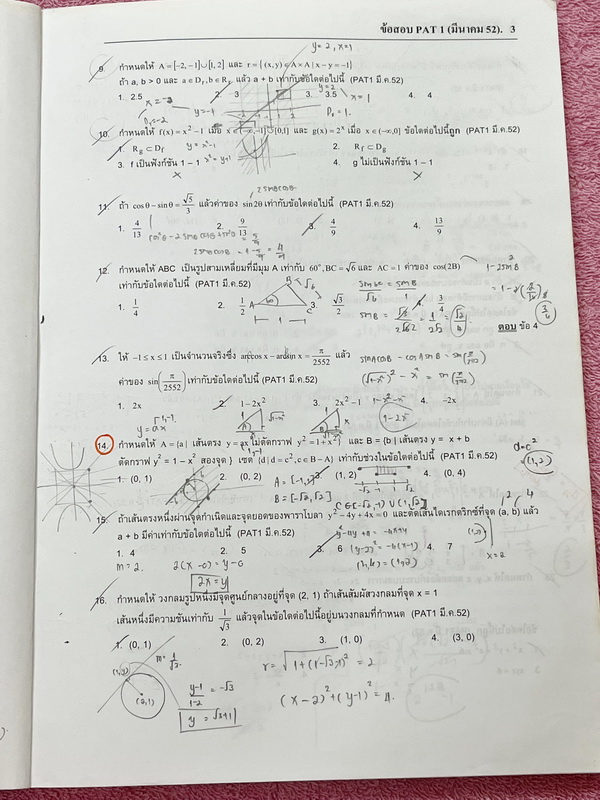 ข้อสอบ PAT 1 (มีนาคม 52). 3
y = 2, x = 1
9. กำหนดให้ A = [-2, -1]∪[1, 2] และ r = { (x, y) ∈ A × A | x - y = -1}
ถ้า a, b > 0 และ a ∈ Dᵣ, b ∈ Rᵣ แล้ว a + b เท่ากับข้อใดต่อไปนี้ (PAT1 มี.ค.52)
1. 2.5 2. 3 3. 3.5 4. 4
10. กำหนดให้ f(x) = x² - 1 เมื่อ x ∈ (-∞, -1]∪[0,1] และ g(x) = 2ˣ เมื่อ x ∈ (-∞,0] ข้อใดต่อไปนี้ถูก (PAT1 มี.ค.52)
1. R_g ⊂ D_f 2. R_f ⊂ D_g
3. f เป็นฟังก์ชัน 1 - 1 4. g ไม่เป็นฟังก์ชัน 1 - 1
2 sinθ cosθ
11. ถ้า cos θ - sin θ = √5/3 แล้วค่าของ sin 2θ เท่ากับข้อใดต่อไปนี้ (PAT1 มี.ค.52)
1. 4/13 2. 9/13 3. 4/9 4. 13/9
12. กำหนดให้ ABC เป็นรูปสามเหลี่ยมที่มีมุม A เท่ากับ 60°, BC = √6 และ AC = 1 ค่าของ cos(2B)
เท่ากับข้อใดต่อไปนี้ (PAT1 มี.ค.52)
1. 1/4 2. 1/2 3. √3/2 4. 3/4
ตอบ ข้อ 4
13. ให้ -1 ≤ x ≤ 1 เป็นจำนวนจริงซึ่ง arccos x - arcsin x = π/2552 แล้ว
ค่าของ sin(π/2552) เท่ากับข้อใดต่อไปนี้ (PAT1 มี.ค.52)
1. 2x 2. 1 - 2x² 3. 2x² - 1 4. -2x
y = ax
14. กำหนดให้ A = {a | เส้นตรง y = ax ไม่ตัดกราฟ y² = 1 + x²} และ B = {b | เส้นตรง y = x + b
ตัดกราฟ y² = 1 - x² สองจุด } เซต {d | d = c², c ∈ B - A} เท่ากับช่วงในข้อใดต่อไปนี้ (PAT1 มี.ค.52)
1. (0, 1) 2. (0, 2) 3. (1, 2) 4. (0, 4)
15. ถ้าเส้นตรงหนึ่งผ่านจุดกำเนิดและจุดยอดของพาราโบลา y² - 4y + 4x = 0 และตัดเส้นไดเรกตริกซ์ที่จุด (a, b) แล้ว
a + b มีค่าเท่ากับข้อใดต่อไปนี้ (PAT1 มี.ค.52)
1. 4 2. 5 3. 6 4. 7
m = 2. 2(x - 0) = y - 0
x = 2
2x = y
16. กำหนดให้ วงกลมรูปหนึ่งมีจุดศูนย์กลางอยู่ที่จุด (2, 1) ถ้าเส้นสัมผัสวงกลมที่จุด x = 1
เส้นหนึ่งมีความชันเท่ากับ 1/√3 แล้วจุดในข้อใดต่อไปนี้อยู่บนวงกลมที่กำหนด (PAT1 มี.ค.52)
1. (0, 1) 2. (0, 2) 3. (1, 0) 4. (3, 0)
m = 1/√3
(2,1)
(y-1)/(1-2) = -√3
y = √3+1
(x - 2)² + (y - 1)² = 4.